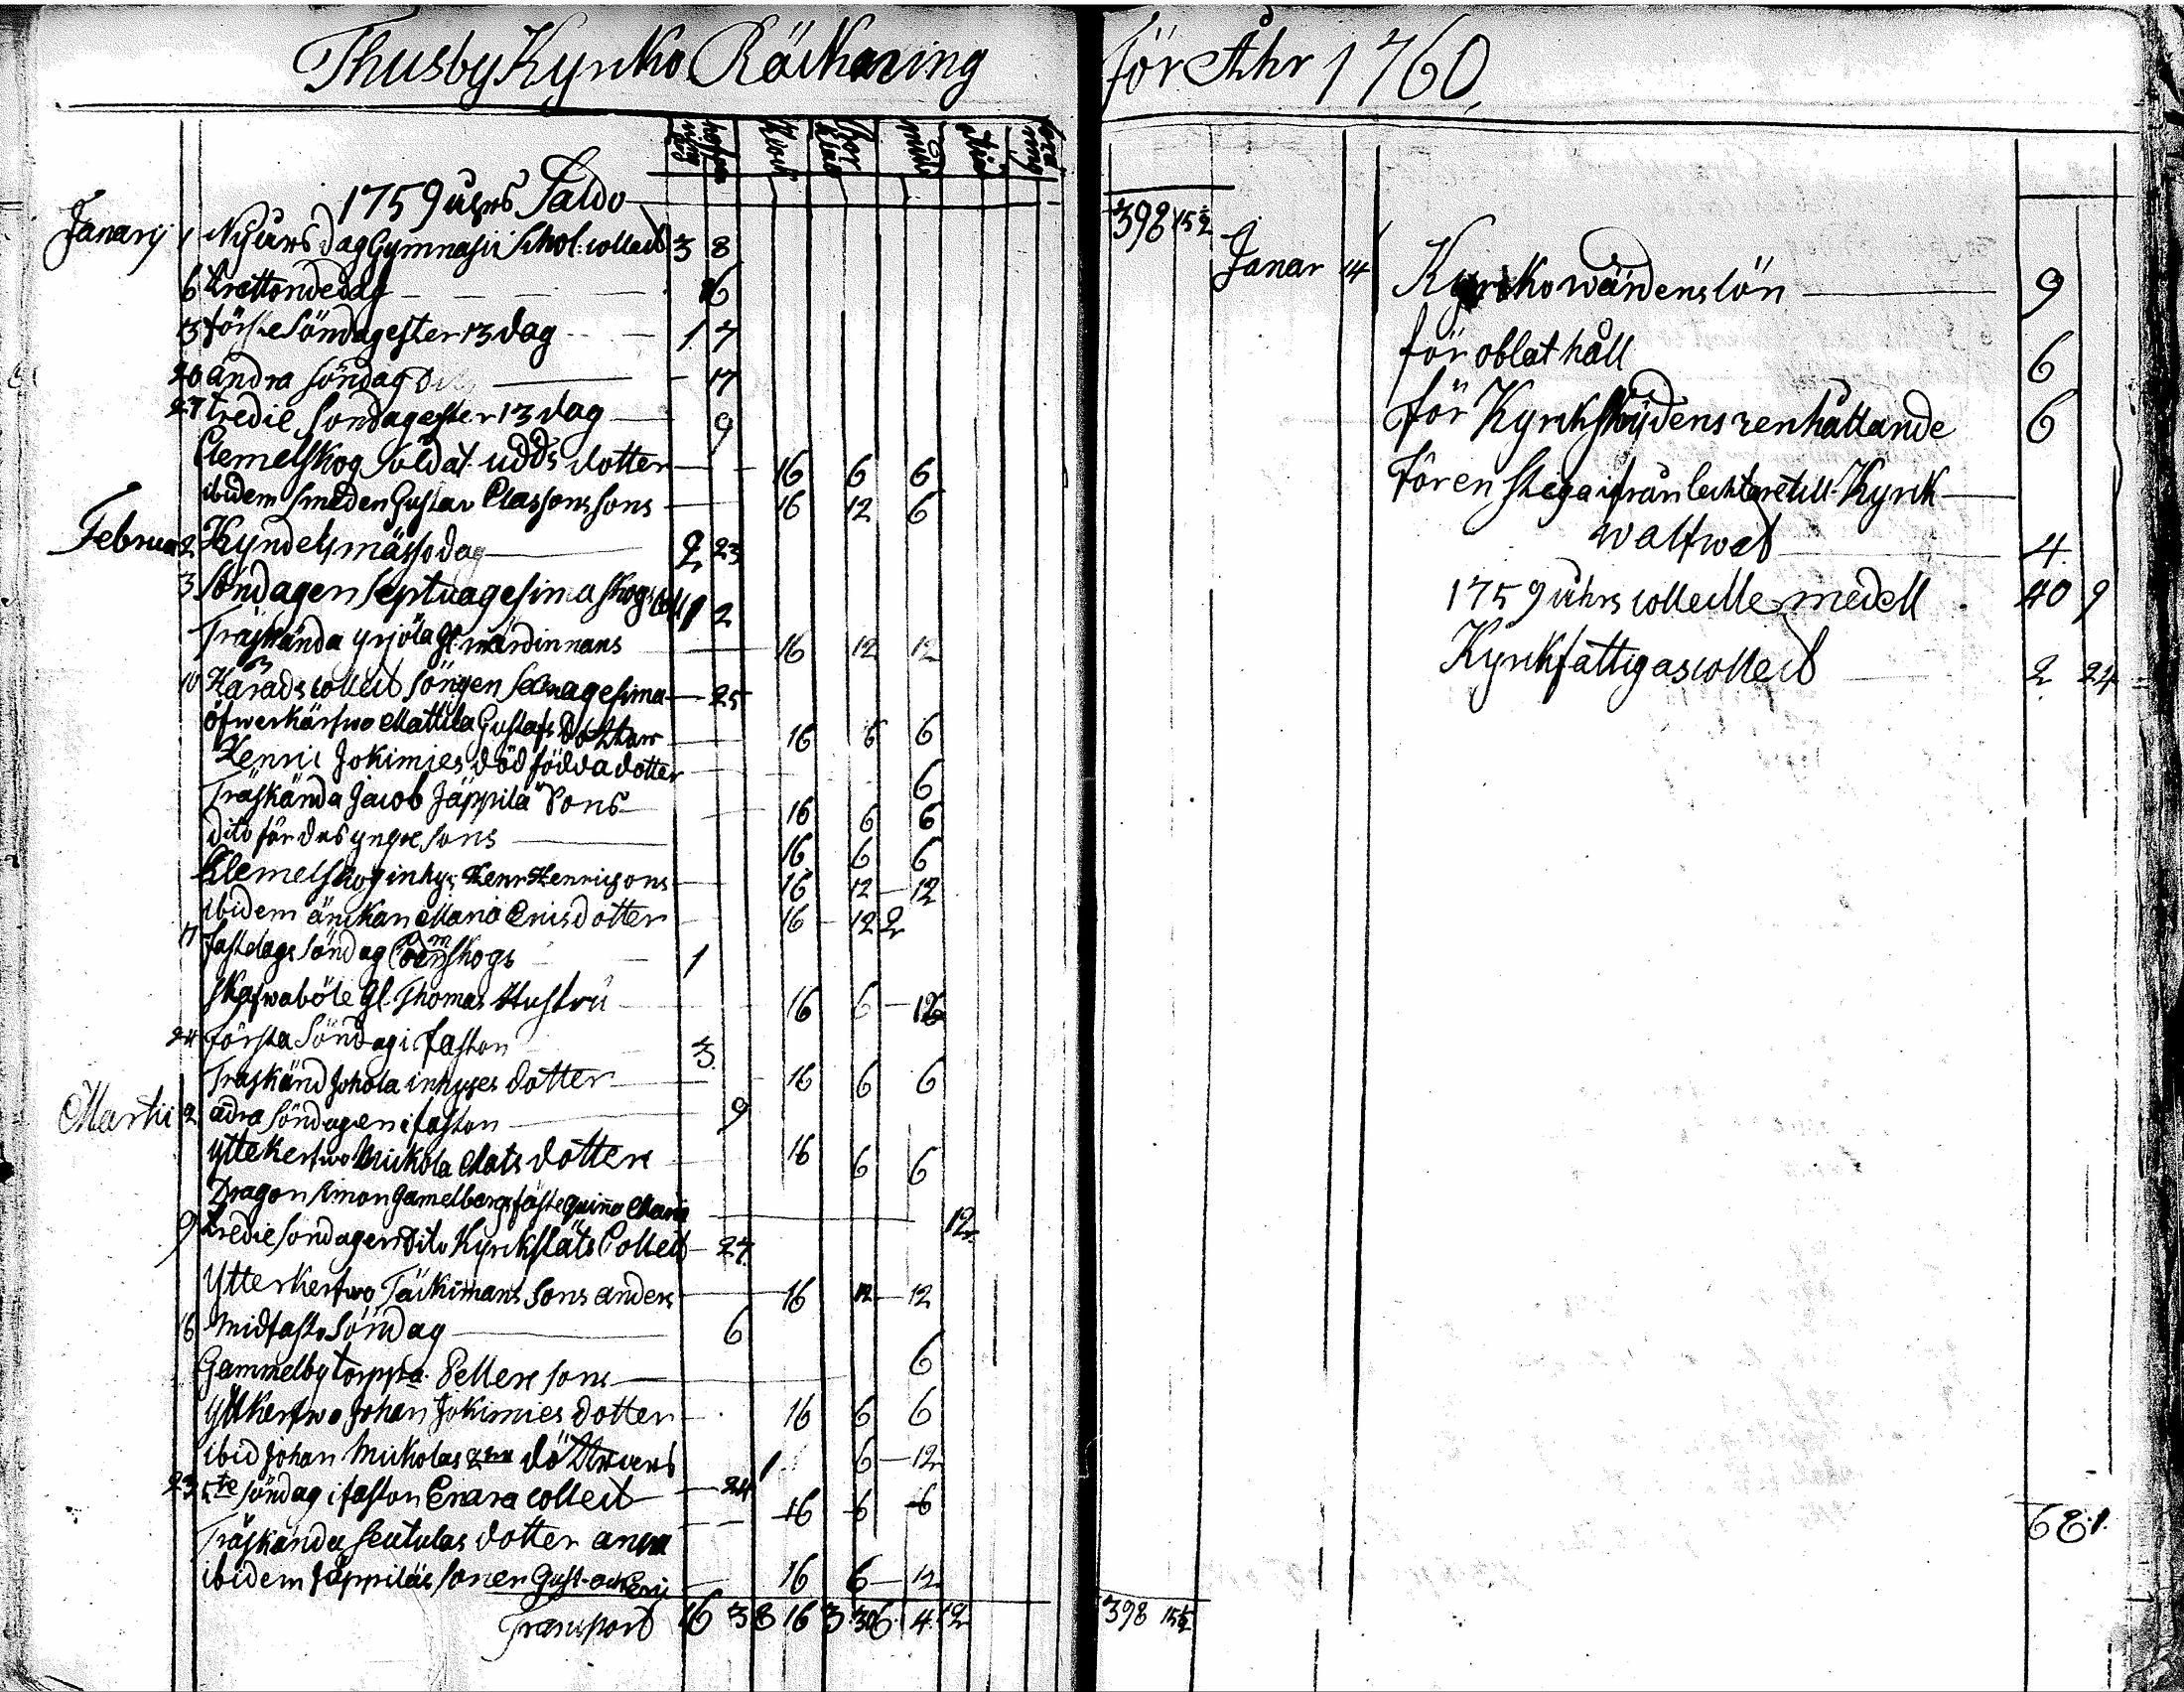 Thusby Kyrko Räckning
för Åhr 1760
1759 åhrs Saldo 398 15½
Januarij 1 Nyårs dag Gymnasii Schol. collect 3 8
6 trettonde dag 16
13 förste Söndag efter 13 dag 1 7
20 andra söndag 17
27 tredie Söndag efter 13 dag 9
Clemetskog Soldat udds dotter 16 6 6
ibidem smeden Gustav Classons sons 16 12 6
Februa 2 Kyndelsmässodag 2 23
3 Söndagen Septuagesima skogs 1 2
Träskända yrjölä gl. wärdinnans 16 12 12
10 Härads collect söngen Sexagesima 25
öfwerkärfwo Mattila Gustafs dotter 16 6 6
Henric Jokimies död födda dotter 6
Träskända Jacob Jäppilä Sons 16 6 6
dito för des yngre sons 16 6 6
Klemetskog inhys Henr Henricsons 16 12 12
ibidem änckan Maria Erisdotter 16 12 2
17 fastlags söndag skogs 1
Skafwaböle gl. Thomas Hustru 16 6 12
24 första Söndag i faston 3
Träskänd Johola inhyses dotter 16 6 6
Martii 2 adra söndagen i faston 9
Ytterkerfwo Mickola Mats dotter 16 6 6
Dragon Simon Gamelbergs fästequinna Maria 12
9 tredie söndagen dito Kyrkslåts Collect 27
Ytterkerfwo Täckimans Sons anders 16 12 12
16 midfasto Söndag 6
Gammelby torppa Pellers sons 6
Yttkerfwo Johan Jokimies dotter 16 6 6
ibid Johan Mickolas 2ne döttrars 1 6 12
23 5te söndag i faston Enara collect 24
Träskända Seutulas dotter anna 16 6 6
ibidem Jäppiläs soner Gust. ock Eric 16 6 12
Transport 16 3 8 16 3 30 6 4 12
398 15½
Januar 14 Kyrkowärdens lön 9
för oblat håll 6
för Kyrkskrudens renhållande 6
För en stega ifrån lecktare till Kyrk
walfwet 4
1759 åhrs collecte medell 40 9
Kyrkfattigas collect 2 24
68 1